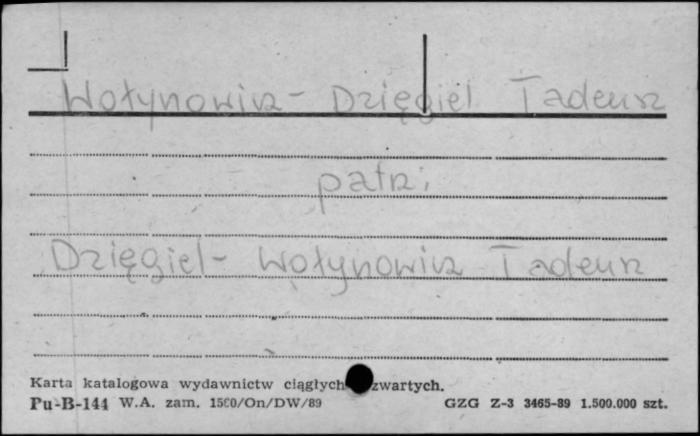 Wołynowicz - Dzięgiel Tadeusz
patrz:
Dzięgiel - Wołynowicz Tadeusz
Karta katalogowa wydawnictw ciągłych zwartych.
Pu-B-144 W.A. zam. 1560/On/DW/89 GZG Z-3 3465-89 1.500.000 szt.